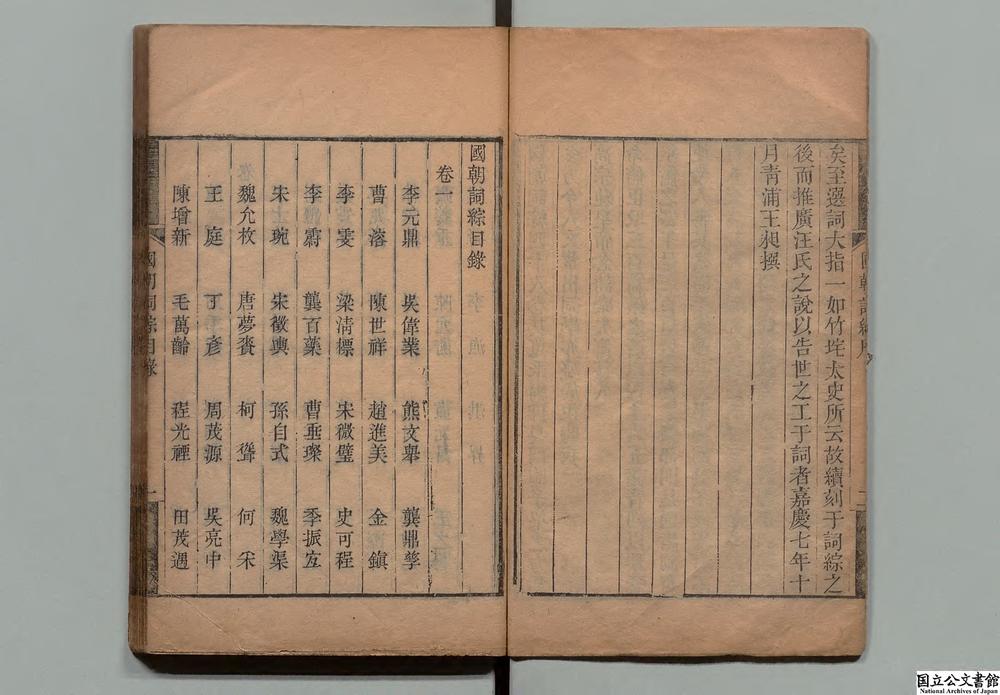 矣至選詞大指一如竹垞太史所云故續刻于詞綜之
後而推廣汪氏之說以告世之工于詞者嘉慶七年十
月青浦王昶撰
國朝詞綜目錄
卷一
李元鼎 吳偉業 熊文舉 龔鼎孳
曹溶 陳世祥 趙進美 金鎮
李雯 梁清標 宋徵璧 史可程
李 龔百藥 曹垂璨 季振宜
宋琬 宋徵輿 孫自式 魏學渠
魏允枚 唐夢賚 柯聳 何采
王庭 丁彥 周茂源 吳亮中
陳增新 毛萬齡 程光禋 田茂遇
國朝詞綜目錄
一
国立公文書館
National Archives of Japan